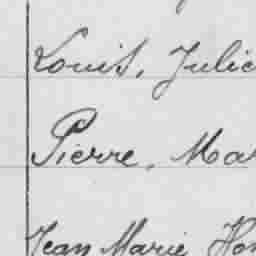 Louis, Julie
Pierre, Mar
Jean Marie Hon